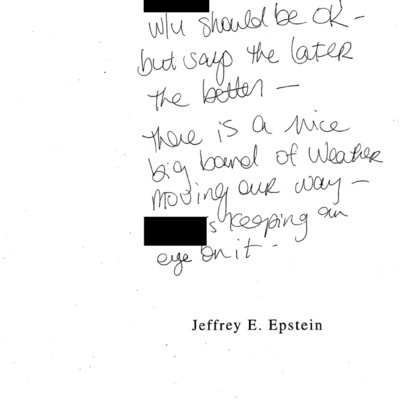 w/u should be OK -
but says the later
the better -
There is a nice
big band of weather
moving our way -
s keeping an
eye on it -
Jeffrey E. Epstein